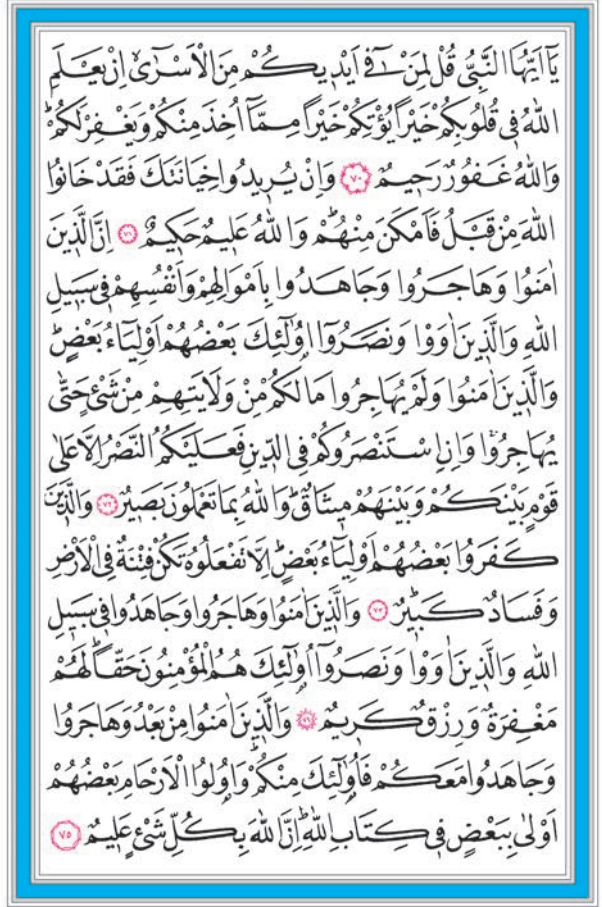 يَٓا اَيُّهَا النَّبِيُّ قُلْ لِمَنْ ف۪ٓي اَيْد۪يكُمْ مِنَ الْاَسْرٰٓىۙ اِنْ يَعْلَمِ
اللّٰهُ ف۪ي قُلُوبِكُمْ خَيْرًا يُؤْتِكُمْ خَيْرًا مِمَّٓا اُخِذَ مِنْكُمْ وَيَغْفِرْ لَكُمْۜ
وَاللّٰهُ غَفُورٌ رَح۪يمٌ ﴿٧٠﴾ وَاِنْ يُر۪يدُوا خِيَانَتَكَ فَقَدْ خَانُوا
اللّٰهَ مِنْ قَبْلُ فَاَمْكَنَ مِنْهُمْۜ وَاللّٰهُ عَل۪يمٌ حَك۪يمٌ ﴿٧١﴾ اِنَّ الَّذ۪ينَ
اٰمَنُوا وَهَاجَرُوا وَجَاهَدُوا بِاَمْوَالِهِمْ وَاَنْفُسِهِمْ ف۪ي سَب۪يلِ
اللّٰهِ وَالَّذ۪ينَ اٰوَوْا وَنَصَرُٓوا اُو۬لٰٓئِكَ بَعْضُهُمْ اَوْلِيَٓاءُ بَعْضٍۜ
وَالَّذ۪ينَ اٰمَنُوا وَلَمْ يُهَاجِرُوا مَا لَكُمْ مِنْ وَلَايَتِهِمْ مِنْ شَيْءٍ حَتّٰى
يُهَاجِرُواۚ وَاِنِ اسْتَنْصَرُوكُمْ فِي الدّ۪ينِ فَعَلَيْكُمُ النَّصْرُ اِلَّا عَلٰى
قَوْمٍ بَيْنَكُمْ وَبَيْنَهُمْ م۪يثَاقٌۜ وَاللّٰهُ بِمَا تَعْمَلُونَ بَص۪يرٌ ﴿٧٢﴾ وَالَّذ۪ينَ
كَفَرُوا بَعْضُهُمْ اَوْلِيَٓاءُ بَعْضٍۜ اِلَّا تَفْعَلُوهُ تَكُنْ فِتْنَةٌ فِي الْاَرْضِ
وَفَسَادٌ كَب۪يرٌ ﴿٧٣﴾ وَالَّذ۪ينَ اٰمَنُوا وَهَاجَرُوا وَجَاهَدُوا ف۪ي سَب۪يلِ
اللّٰهِ وَالَّذ۪ينَ اٰوَوْا وَنَصَرُٓوا اُو۬لٰٓئِكَ هُمُ الْمُؤْمِنُونَ حَقًّاۜ لَهُمْ
مَغْفِرَةٌ وَرِزْقٌ كَر۪يمٌ ﴿٧٤﴾ وَالَّذ۪ينَ اٰمَنُوا مِنْ بَعْدُ وَهَاجَرُوا
وَجَاهَدُوا مَعَكُمْ فَاُو۬لٰٓئِكَ مِنْكُمْۜ وَاُو۬لُوا الْاَرْحَامِ بَعْضُهُمْ
اَوْلٰى بِبَعْضٍ ف۪ي كِتَابِ اللّٰهِۜ اِنَّ اللّٰهَ بِكُلِّ شَيْءٍ عَل۪يمٌ ﴿٧٥﴾